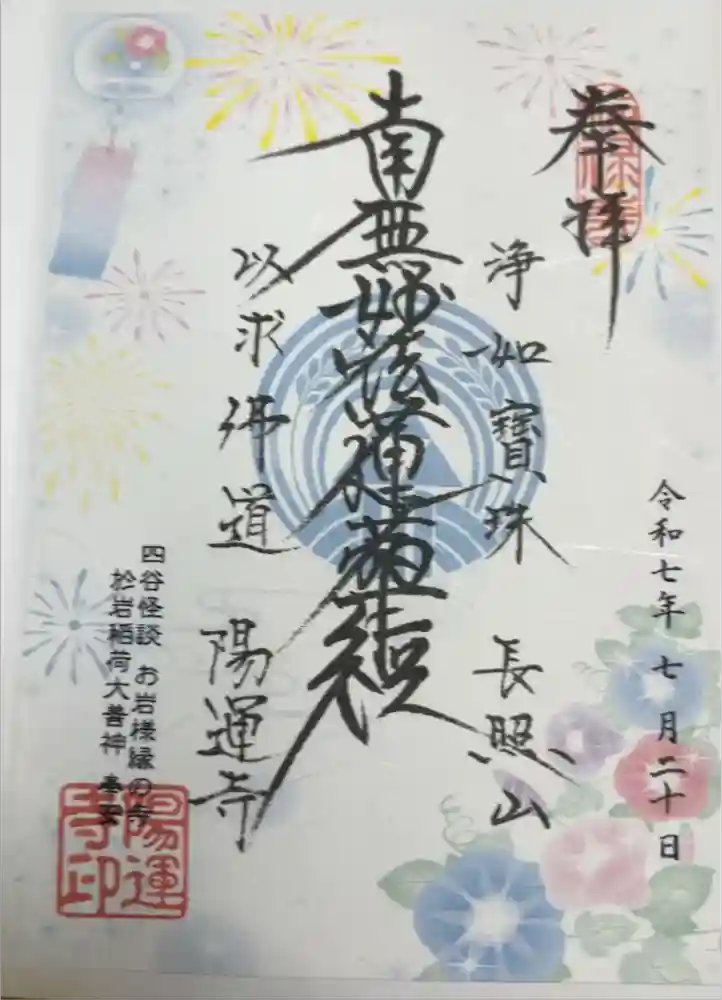 奉拝
令和七年七月二十日
浄如寳珠
長照山
南無妙法蓮華経
以求佛道
陽運寺
四谷怪談 お岩様縁の寺
於岩稲荷大善神 奉安
陽運
寺印